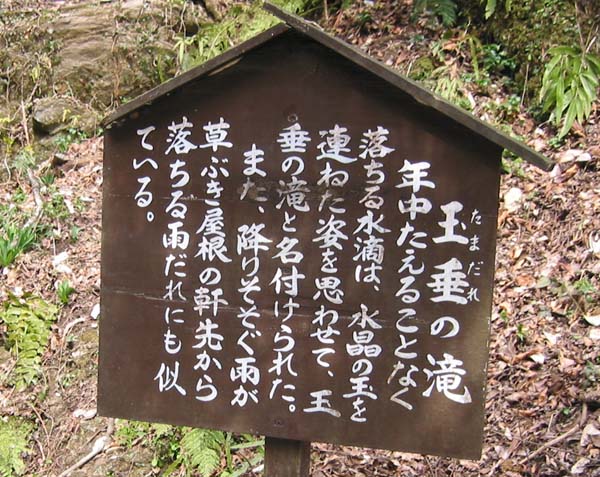 玉垂の滝
たまだれ
年中たえることなく
落ちる水滴は、水晶の玉を
連ねた姿を思わせて、玉
垂の滝と名付けられた。
また、降りそそぐ雨が
草ぶき屋根の軒先から
落ちる雨だれにも似
ている。